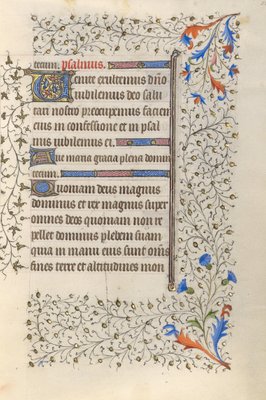 tecum. psalmus.
Uenite exultemus dño
iubilemus deo salu
tari nostro preocupemus faciem
eius in confessione et in psal
mis iubilemus ei.
Aue maria gracia plena domin
tecum.
Quoniam deus magnus
dominus et rex magnus super
omnes deos quoniam non re
pellet dominus plebem suam
quia in manu eius sunt om̃s
fines terre et altitudines mon